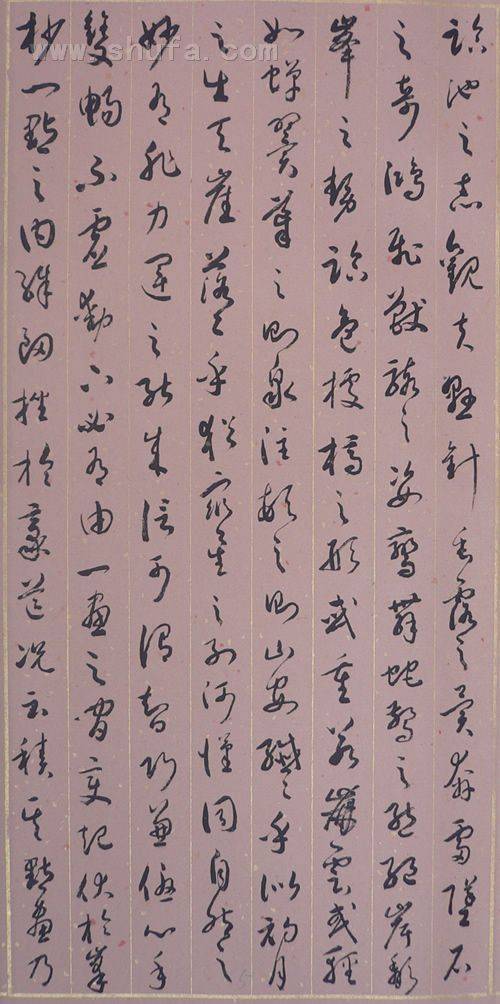 www.shufa.com
臨池之志觀夫懸針垂露之異奔雷墜石
之奇鴻飛獸駭之姿鸞舞蛇驚之態絕岸頹
峯之勢臨危據槁之形或重若崩雲或輕
如蟬翼導之則泉注頓之則山安纖々乎似初月
之出天崖落々乎猶眾星之列河漢同自然之
妙有非力運之能成信可謂智巧兼優心手
雙暢不虛動下必有由一畫之間變起伏於峯
杪一點之內殊衄挫於毫芒況云積其點畫乃